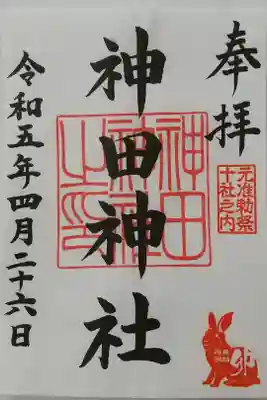 奉拝
元准勅祭
十社之内
卯
神田神社
神田
神社
之印
令和五年四月二十六日